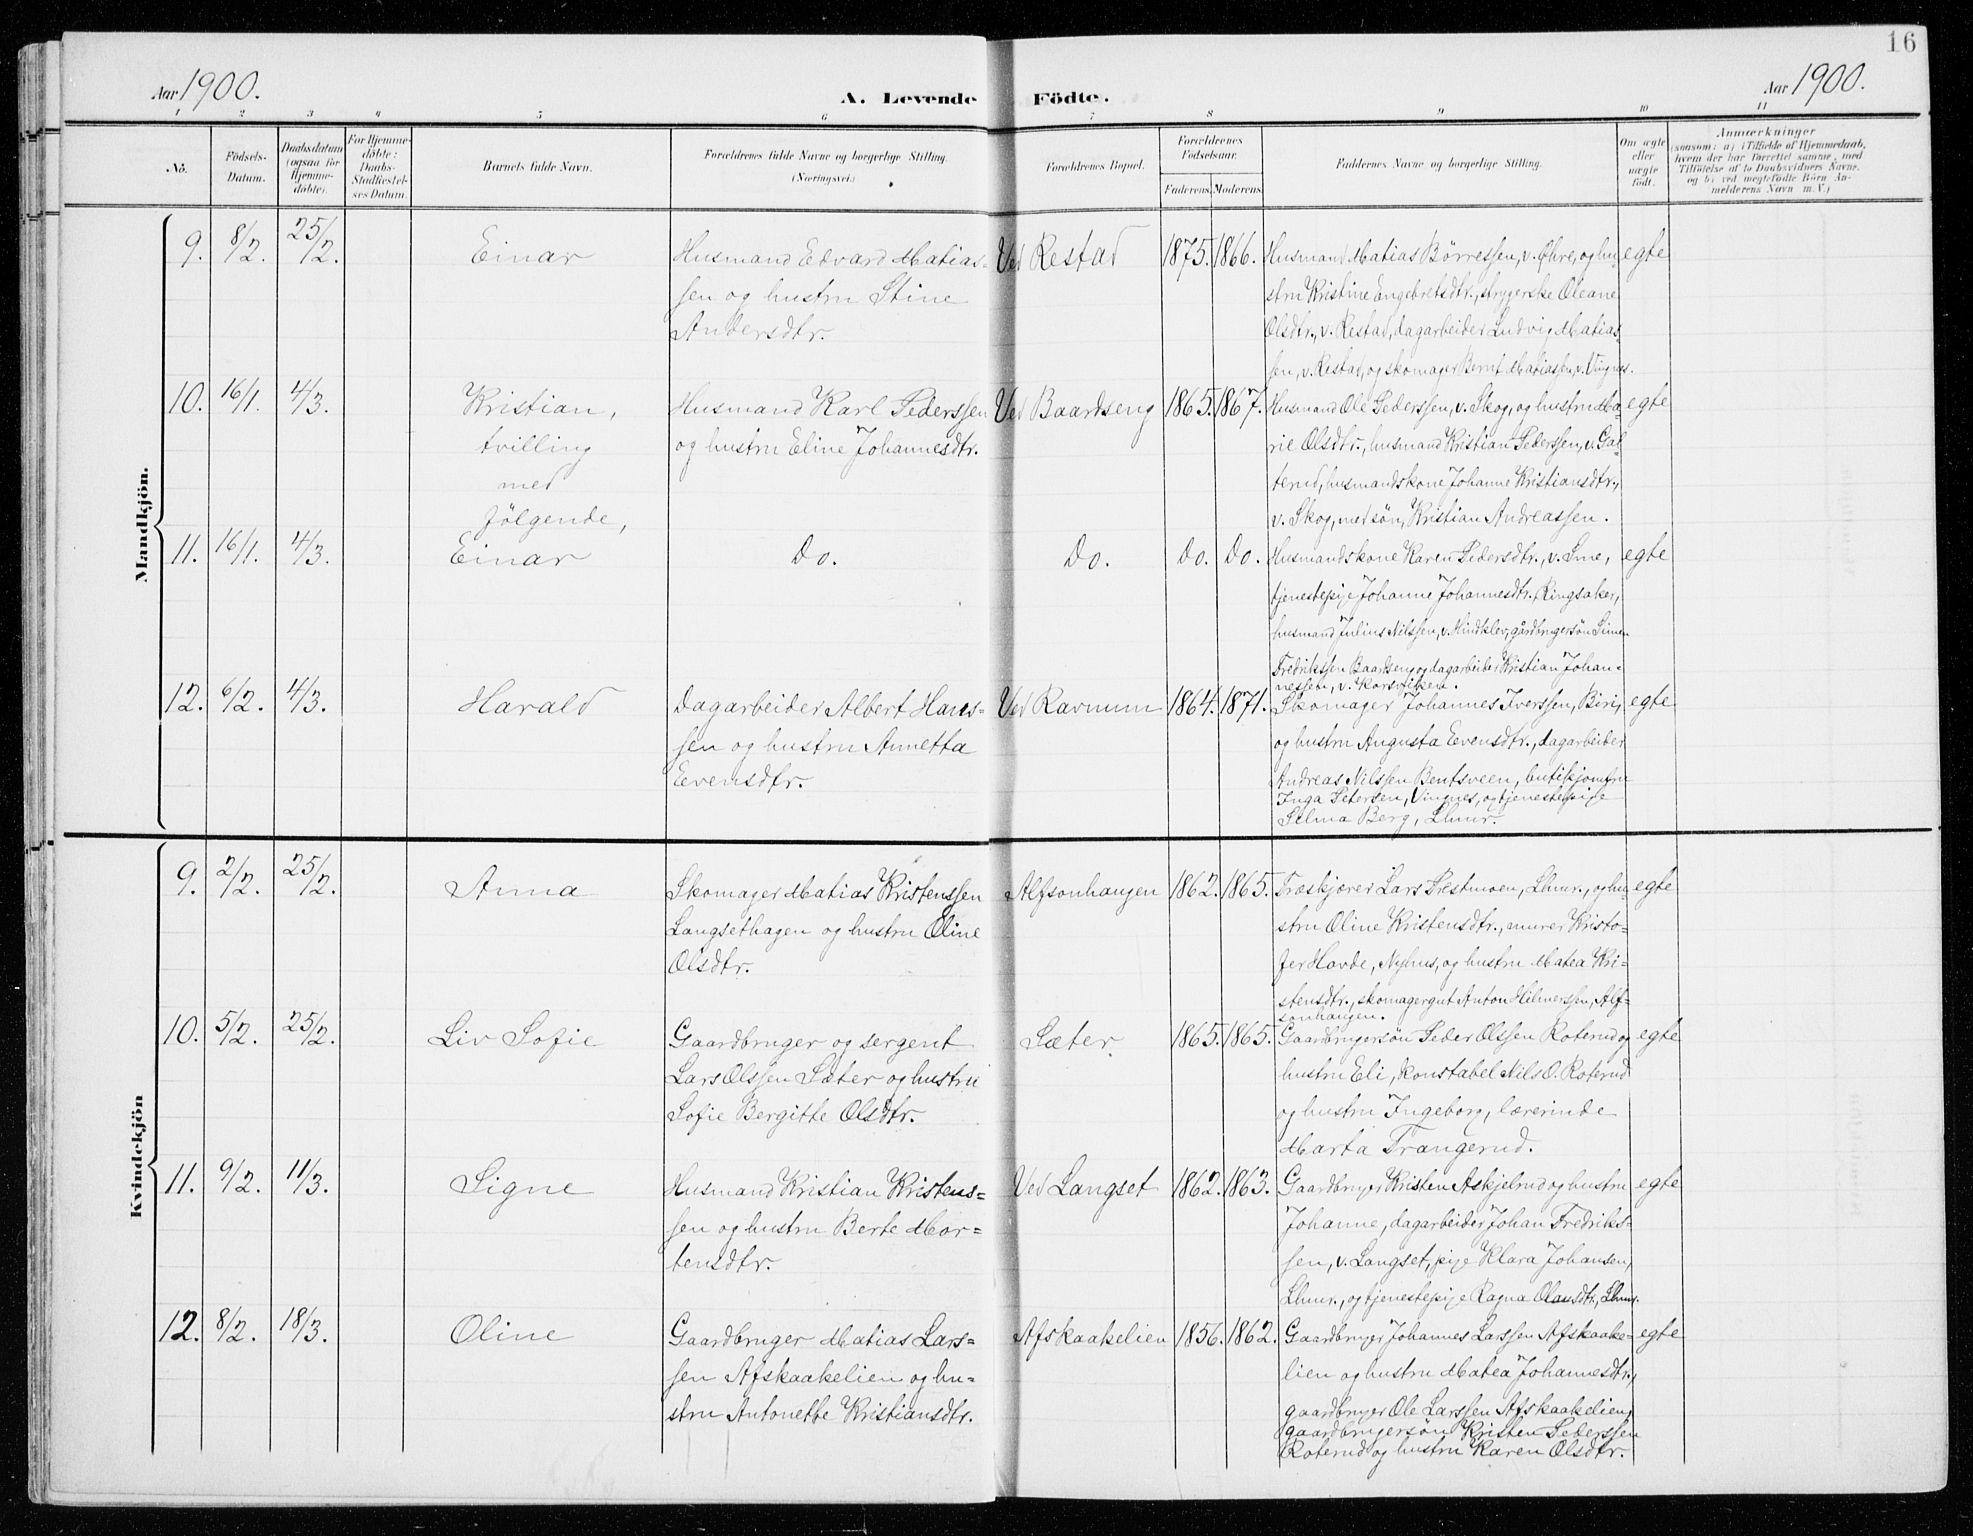 16
Aar 1900.
A. Levende Födte.
Aar 1900.
1 2 3 4 5 6 7 8 9 10 11
No.
Födsels-
Datum.
Daabsdatum
(ogsaa for
Hjemme-
döbte).
For Hjemme-
döbte:
Daabs-
Stadfæstel-
ses Datum.
Barnets fulde Navn.
Forældrenes fulde Navne og borgerlige Stilling.
(Næringsvei.)
Forældrenes Bopæl.
Forældrenes
Födselsaar.
Faderens. Moderens.
Faddernes Navne og borgerlige Stilling.
Om ægte
eller
uægte
födt.
Anmærkninger
(saasom: a) i Tilfælde af Hjemmedaab,
hvem der har forrettet samme, med
Tilföielse af to Daabsvidners Navne,
og b) ved uægtefödte Börn An-
melderens Navn m. V.)
Mandkjön.
9. 8/2. 25/2. Einar
Husmand Edvard Matias-
sen og hustru Stine
Andersdtr.
Ved Restad 1875. 1866.
Husmand Matias Börressen, v. Öhre, og hu-
stru Kristine Engebretsdtr., strygerske Oleane
Olsdtr., v. Restad, dagarbeider Ludvig Matias-
sen, v. Restad, og skomager Bernt Matiassen, v. Vingnes.
egte
10. 16/1. 4/3. Kristian,
tvilling
med
følgende,
Husmand Karl Pederssen
og hustru Eline Johannesdtr.
Ved Baardseng 1865. 1867.
Husmand Ole Pederssen, v. Skog, og hustru Ma-
rie Olsdtr., husmand Kristian Pederssen, v. Gal-
terud, husmandskone Johanne Kristiansdtr.,
v. Skog, med sön, Kristian Andreassen.
egte
11. 16/1. 4/3. Einar
Do.
Do. Do. Do.
Husmandskone Karen Pedersdtr., v. Sme,
tjenestepige Johanne Johannesdtr., Ringsaker,
husmand Julius Nilssen, v. Hindklev, gårdbrugersøn Simen
Fredrikssen Baardseng og dagarbeider Kristian Johan-
nessen, v. Korsviken.
egte
12. 6/2. 4/3. Harald
Dagarbeider Albert Hans-
sen og hustru Annetta
Evensdtr.
Ved Ravnum 1864. 1871.
Skomager Johannes Iverssen, Biri,
og hustru Augusta Evensdtr., dagarbeider
Andreas Nilssen Bentsveen, butikjomfru
Inga Petersen, Vingnes, og tjenestepige
Selma Berg, Lhmr.
egte
Kvindekjön
9. 2/2. 25/2. Anna
Skomager Matias Kristenssen
Langsethagen og hustru Oline
Olsdtr.
Alfsonhaugen 1862. 1865.
Træskjærer Lars Prestmoen, Lhmr., og hu-
stru Oline Kristensdtr., murer Kristo-
fer Hovde, Nyhus, og hustru Matea Kri-
stensdtr., skomagergut Anton Hilmerssen, Alf-
sonhaugen.
egte
10. 5/2. 25/2. Liv Sofie
Gaardbruger og sergent
Lars Olssen Sæter og hustru
Sofie Bergitte Olsdtr.
Sæter 1865. 1865.
Gaardbrugersøn Peder Olssen Roterud og
hustru Eli, konstabel Nils O. Roterud
og hustru Ingeborg, lærerinde
Marta Trangerud.
egte
11. 9/2. 11/3. Signe
Husmand Kristian Kristens-
sen og hustru Berte Mor-
tensdtr.
Ved Langset 1862. 1863.
Gaardbruger Kristen Askjelrud og hustru
Johanne, dagarbeider Johan Fredriks-
sen, v. Langset, pige Klara Johansen,
Lhmr., og tjenestepige Ragna Olausdtr., Lhmr.
egte
12. 8/2. 18/3. Oline
Gaardbruger Matias Lars-
sen Afskaakelien og hu-
stru Antonette Kristiansdtr.
Afskaakelien 1856. 1862.
Gaardbruger Johannes Larssen Afskaake-
lien og hustru Matea Johannesdtr.,
gaardbruger Ole Larssen Afskaakelien,
gaardbrugersön Kristen Pederssen
Roterud og hustru Karen Olsdtr.
egte